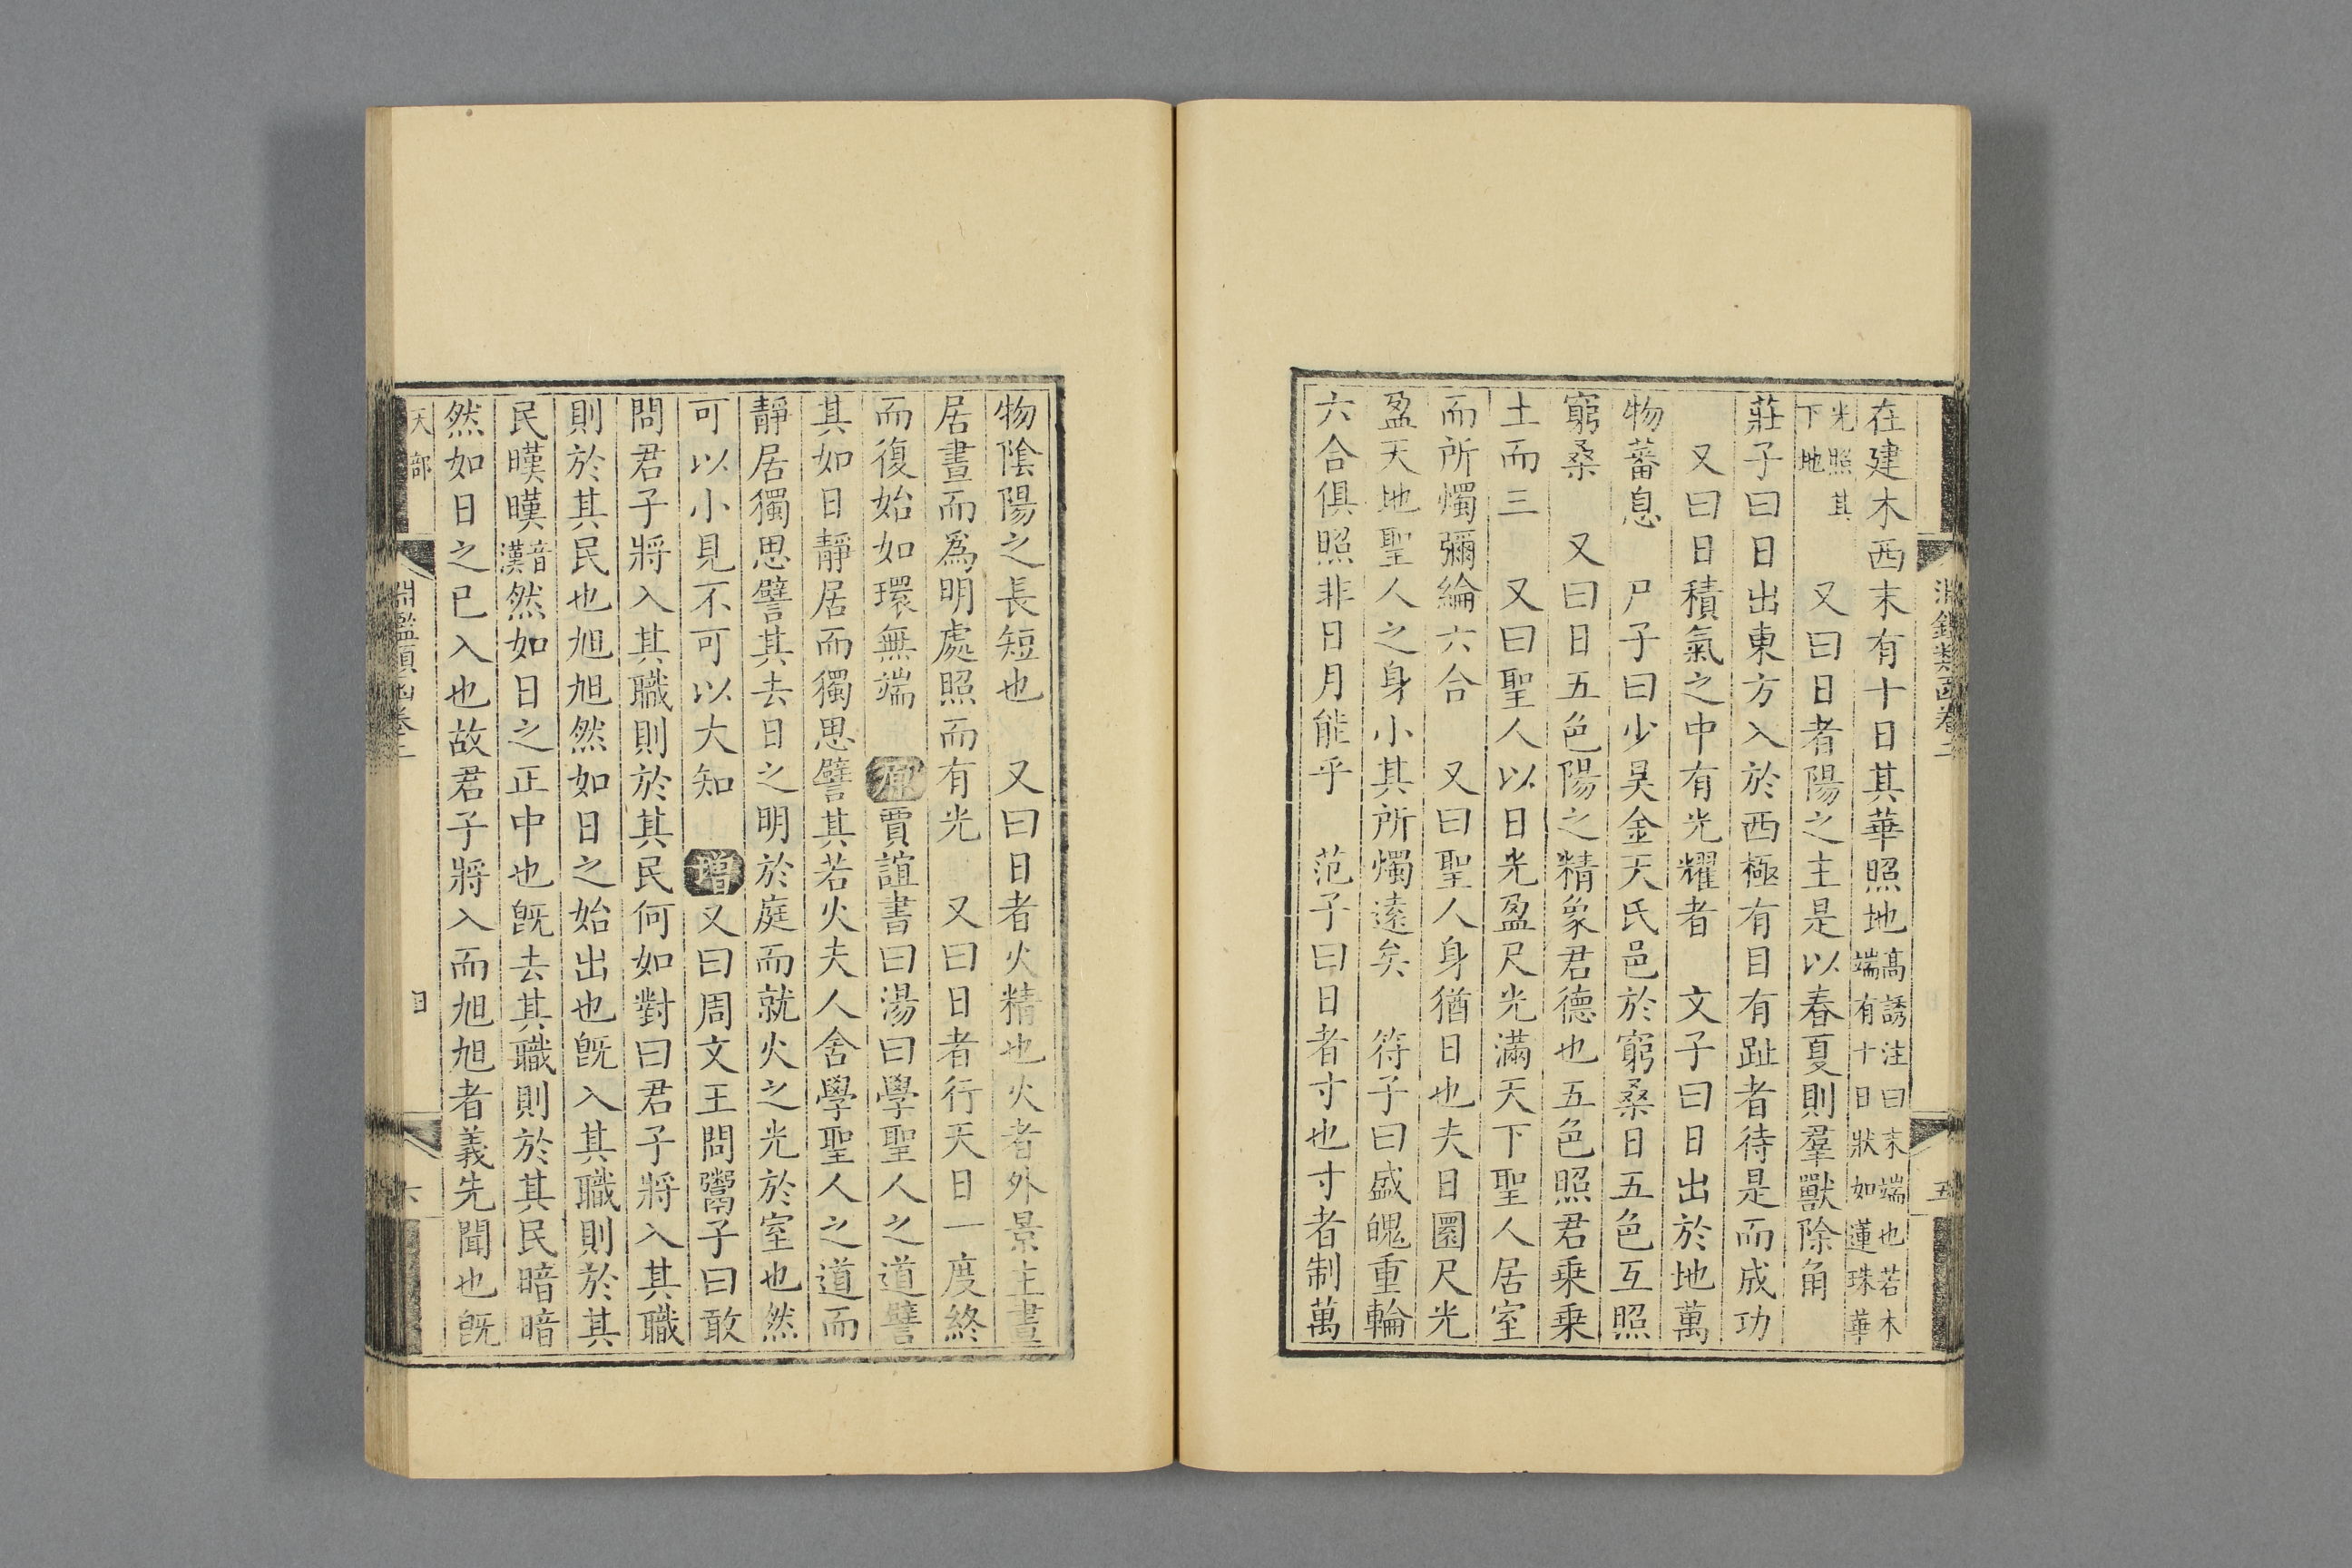 在建木西末有十日其華照地高誘注曰末端也若木端有十日狀如蓮珠華
光照其下地　又曰日者陽之主是以春夏則羣獸除角
莊子曰日出東方入於西極有目有趾者待是而成功
又曰日積氣之中有光耀者　文子曰日出於地萬
物蕃息　尸子曰少昊金天氏邑於窮桑日五色互照
窮桑　又曰日五色陽之精象君德也五色照君乗乗
土而三　又曰聖人以日光盈尺光滿天下聖人居室
而所燭彌綸六合　又曰聖人身猶日也夫日圓尺光
盈天地聖人之身小其所燭遠矣　符子曰盛魄重輪
六合俱照非日月能乎　范子曰日者寸也寸者制萬
五
物陰陽之長短也　又曰日者火精也火者外景主晝
居晝而爲明處照而有光　又曰日者行天日一度終
而復始如環無端　原賈誼書曰湯曰學聖人之道譬
其如日靜居而獨思譬其若火夫人舍學聖人之道而
靜居獨思譬其去日之明於庭而就火之光於室也然
可以小見不可以大知　增又曰周文王問鬻子曰敢
問君子將入其職則於其民何如對曰君子將入其職
則於其民也旭旭然如日之始出也旣入其職則於其
民暵暵音漢然如日之正中也旣去其職則於其民暗暗
然如日之已入也故君子將入而旭旭者義先聞也旣
天部
淵鑑類函卷二
日
六